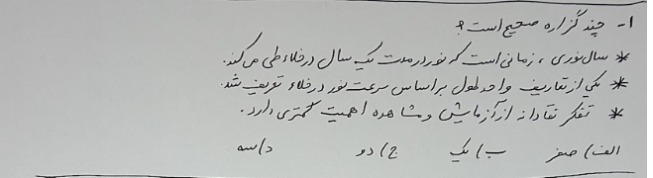 ۱- چند گزاره صحیح است؟
* سال نوری، زمانی است که نور در مدت یک سال در خلاء طی می‌کند.
* یکی از تعاریف واحد طول بر اساس سرعت نور در خلاء تعریف شد.
* تفکر نقادانه از آزمایش و مشاهده اهمیت کمتری دارد.
الف) صفر ب) یک ج) دو د) سه